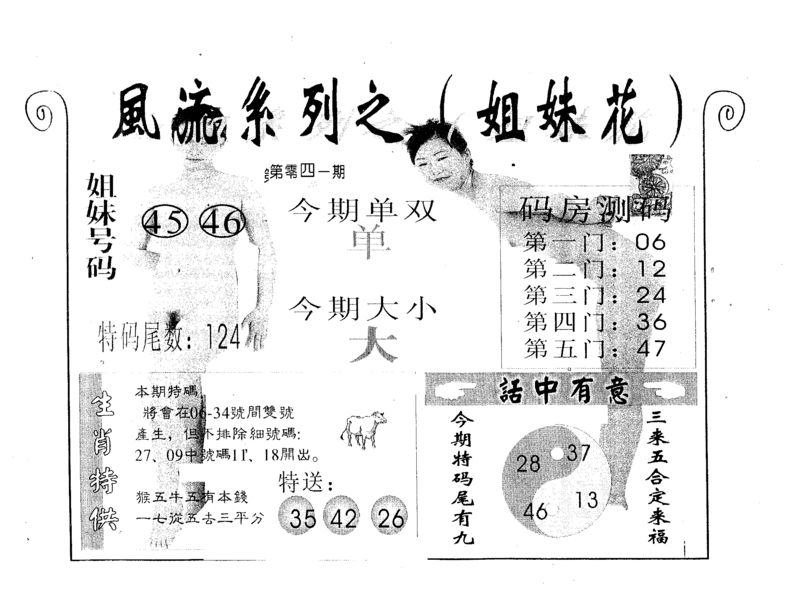 風流系列之（姐妹花）
第零四一期
姐妹号码
45 46
特码尾数：124
今期单双
单
今期大小
大
码房测码
第一门：06
第二门：12
第三门：24
第四门：36
第五门：47
生肖特供
本期特碼
將會在06-34號間雙號
產生，但不排除細號碼:
27、09中號碼11、18開出。
猴五牛五有本錢
一七從五去三平分
特送：
35 42 26
話中有意
今期特码尾有九
28 37
46 13
三来五合定来福